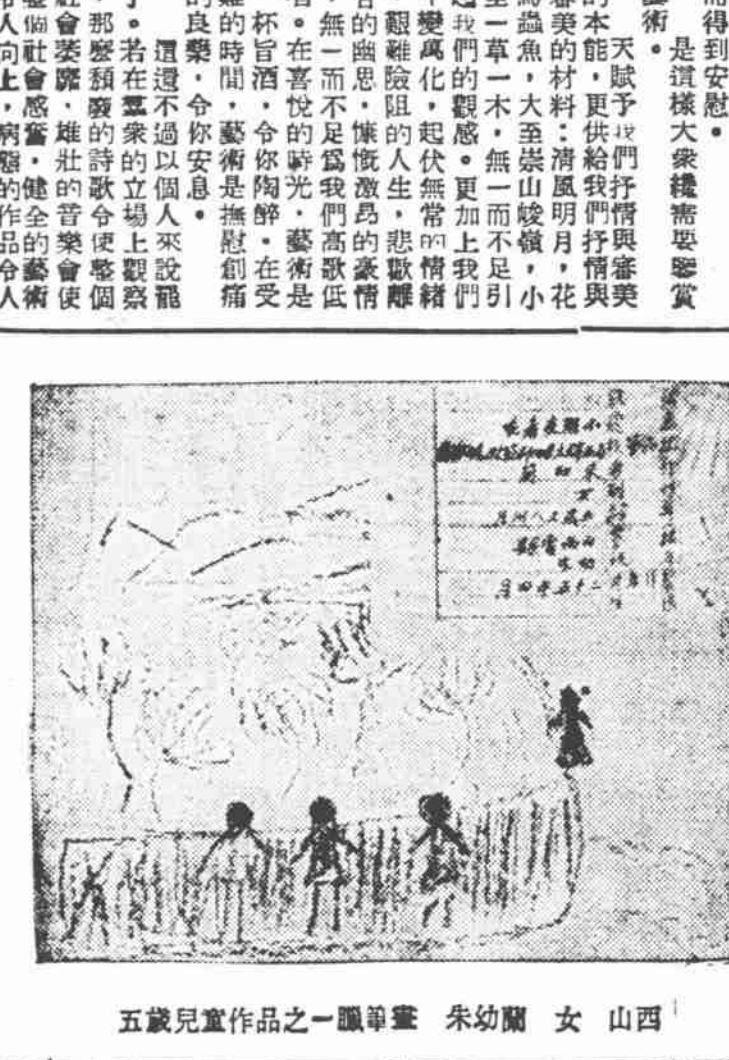 而得到安慰。
是這樣大衆纔需要鑒賞
藝術。
天賦予我們抒情與審美
的本能，更供給我們抒情與
審美的材料：清風明月，花
鳥蟲魚，大至崇山峻嶺，小
至一草一木，無一而不足引
起我們的觀感。更加上我們
千變萬化，起伏無常的情緒
，艱難險阻的人生，悲歡離
合的幽思，慷慨激昂的豪情
，無一而不足爲我們高歌低
。在喜悅的時光，藝術是
杯旨酒，令你陶醉。在受
難的時間，藝術是撫慰創痛
的良藥，令你安息。
這還不過以個人來說罷
了。若在羣衆的立場上觀察
，那麼頹廢的詩歌令使整個
社會萎靡，雄壯的音樂會使
整個社會感奮，健全的藝術
令人向上，病態的作品令人
朱幼蘭
女
二十五年四月
五歲兒童作品之一臘筆畫 朱幼蘭 女 山西